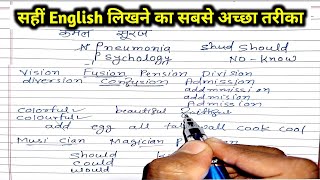 सहीं English लिखने का सबसे अच्छा तरीका
कमल सूरज
Pneumonia Shud Should
Psychology NO-Know
Vision Fusion Pension Division
diversion Confusion Admission
addmission
admision
Admission
colorful beautiful
colourful
add egg all fall wall cook cool
Musi cian Magician
Should
could
would